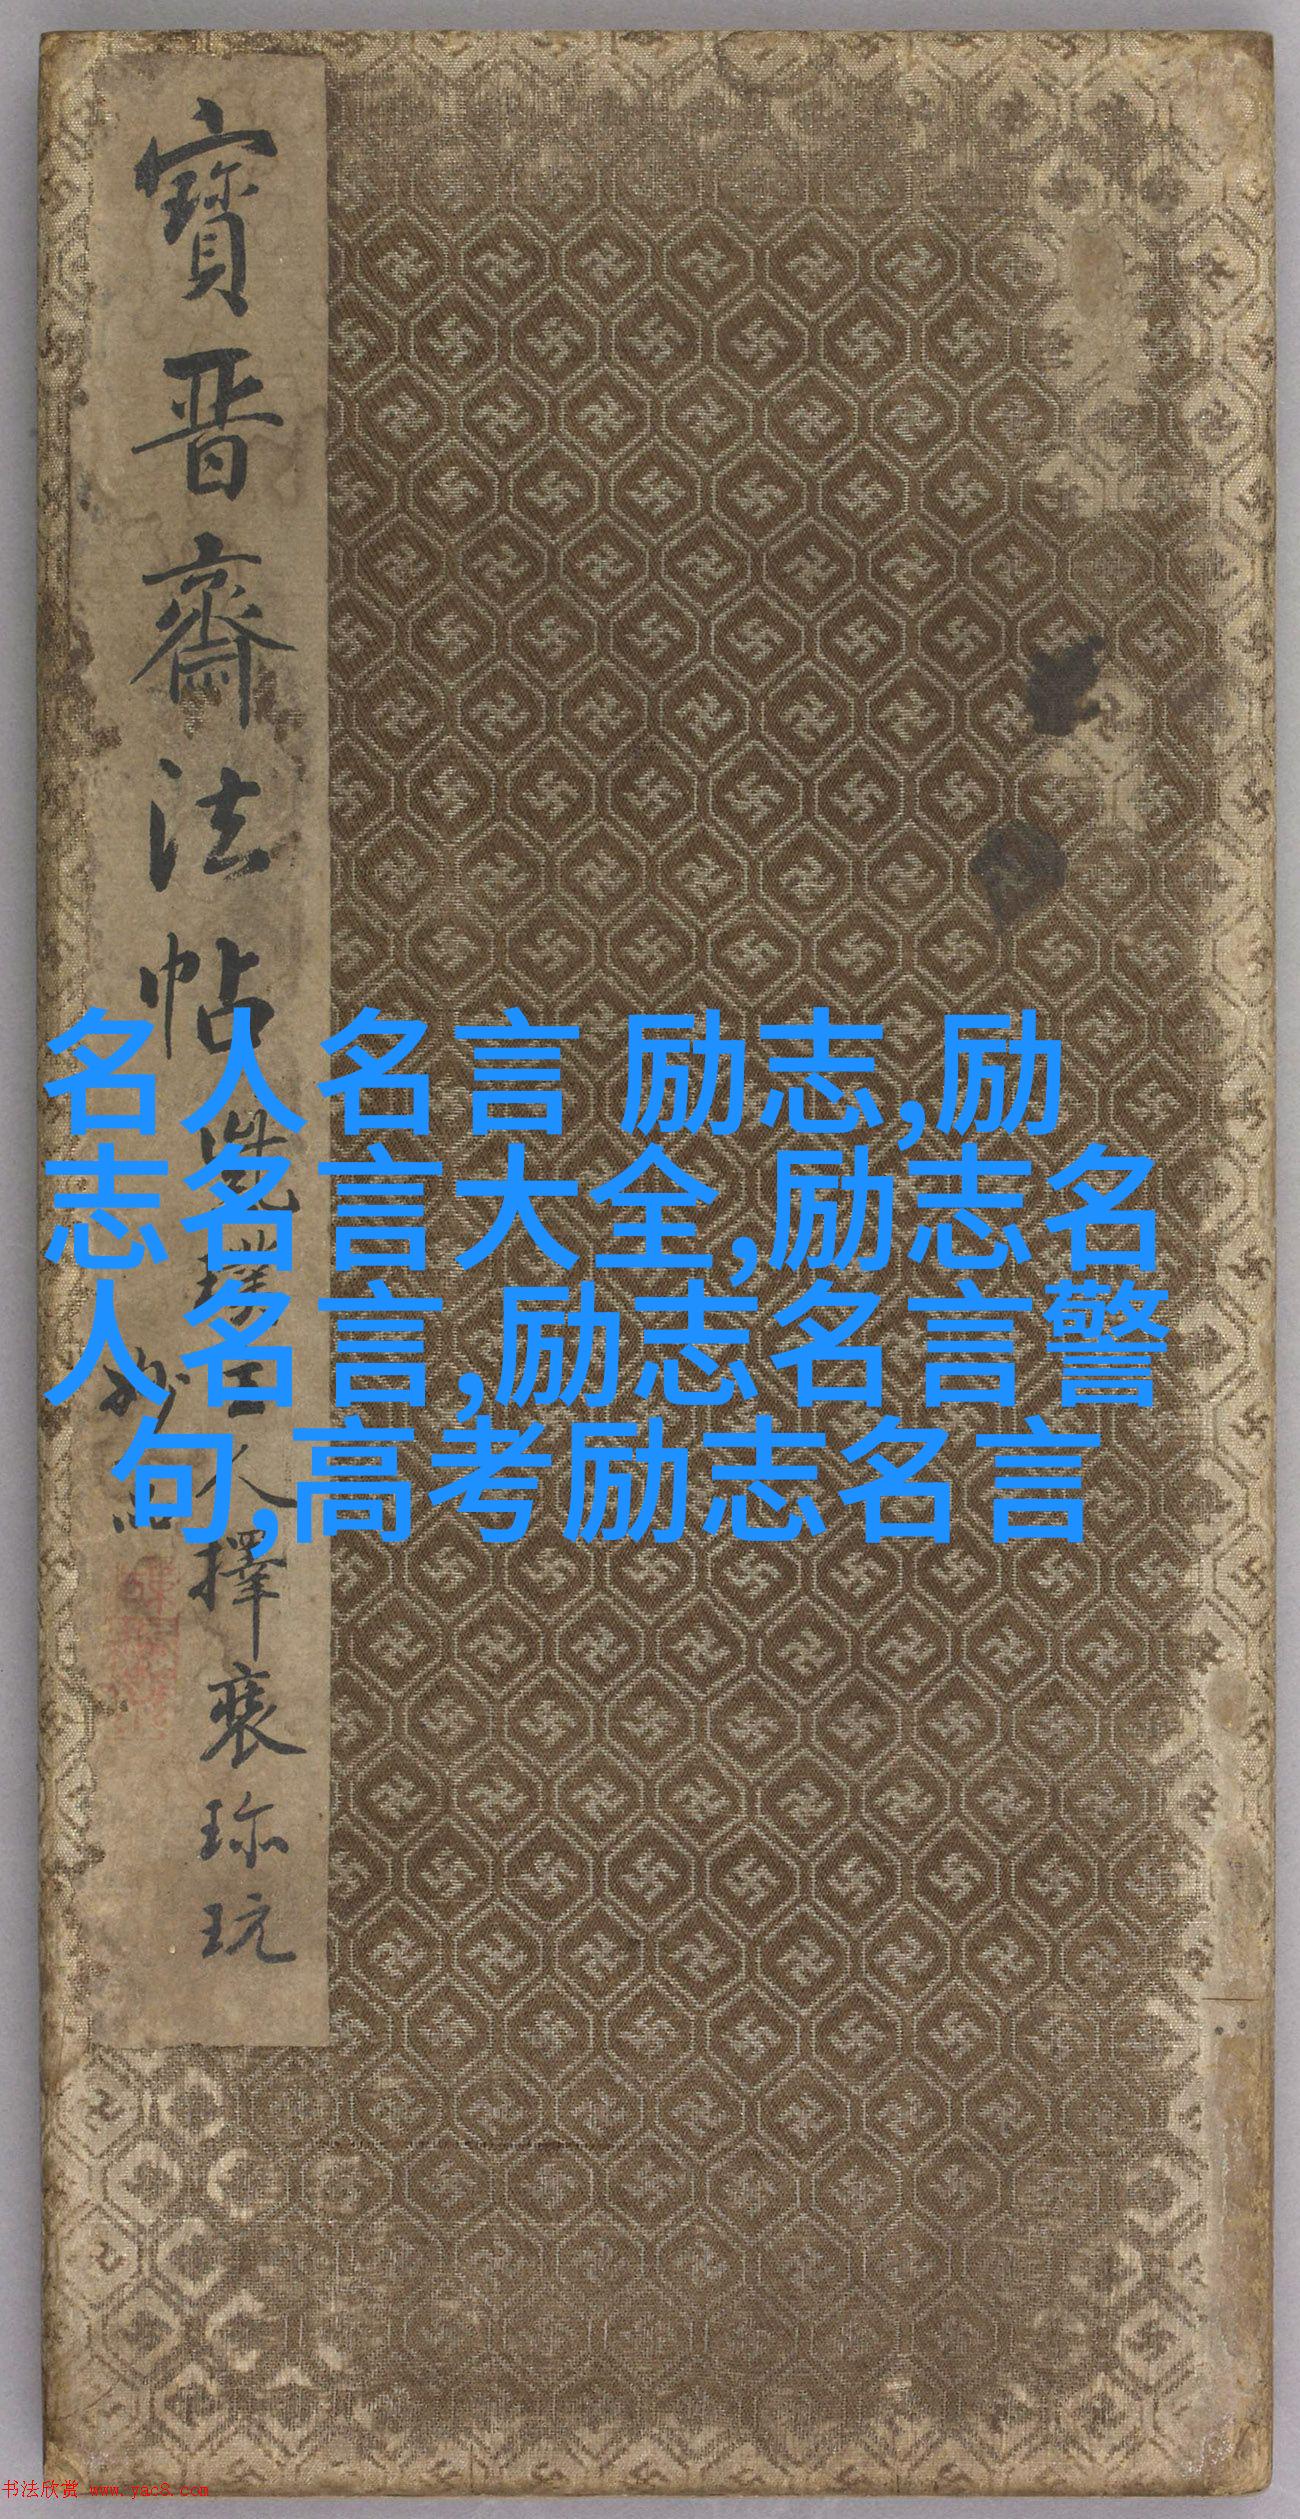 寶晋齋法帖
人擇裘珎玩
名人名言 励志,励
志名言大全,励志名
人名言,励志名言警
句,高考励志名言
书法欣赏 www.yac8.com